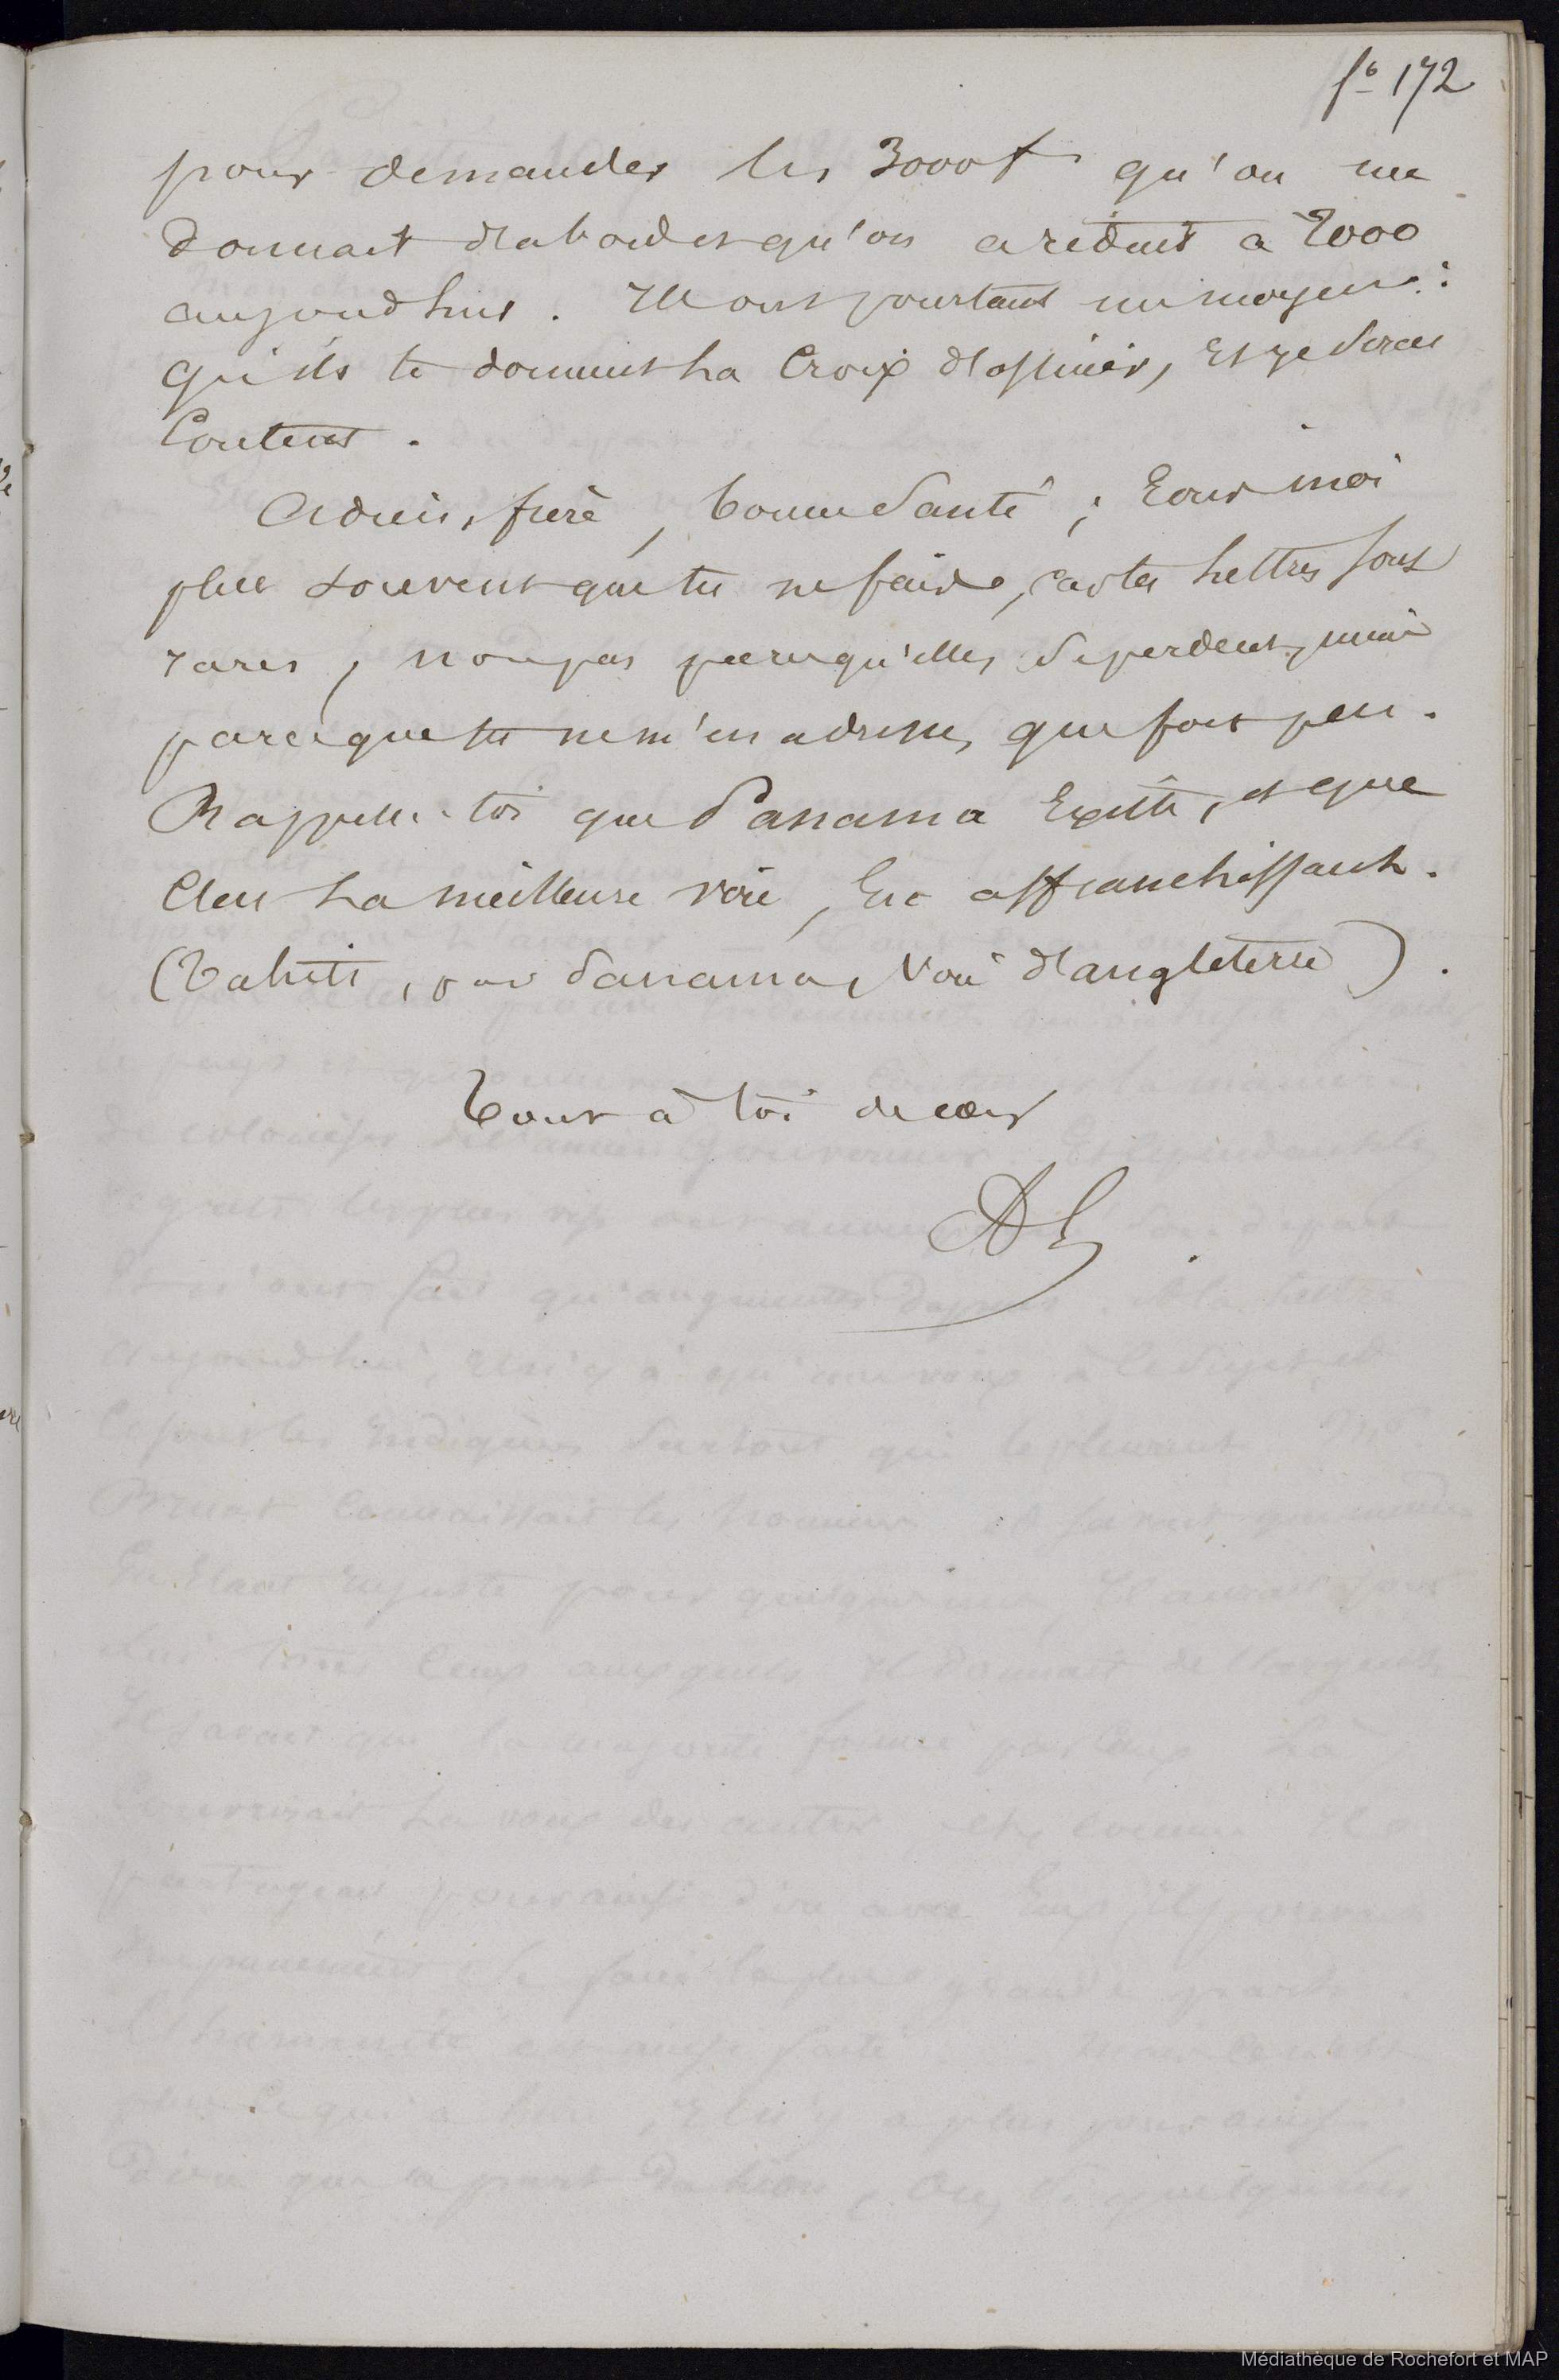 fo 172
pour demander les 3000f qu'on me
donnait d'abord et qu'on a réduit à 2000
aujourd'hui. Ils ont pourtant un moyen :
qu'ils te donnent la Croix d'officier, et je serai
Content.
Adieu, frère, bonne santé ; Ecris moi
plus souvent que tu ne fais, car tes lettres sont
rares, non pas parcequ'elles se perdent, mais
parceque tu ne m'en adresses que fort peu.
Rappelle-toi que Panama Existe, et que
C'est la meilleure voie, En affranchissant.
(Tahiti, par Panama, Voie d'angleterre).
Tout à toi de coeur
Médiathèque de Rochefort et MAP